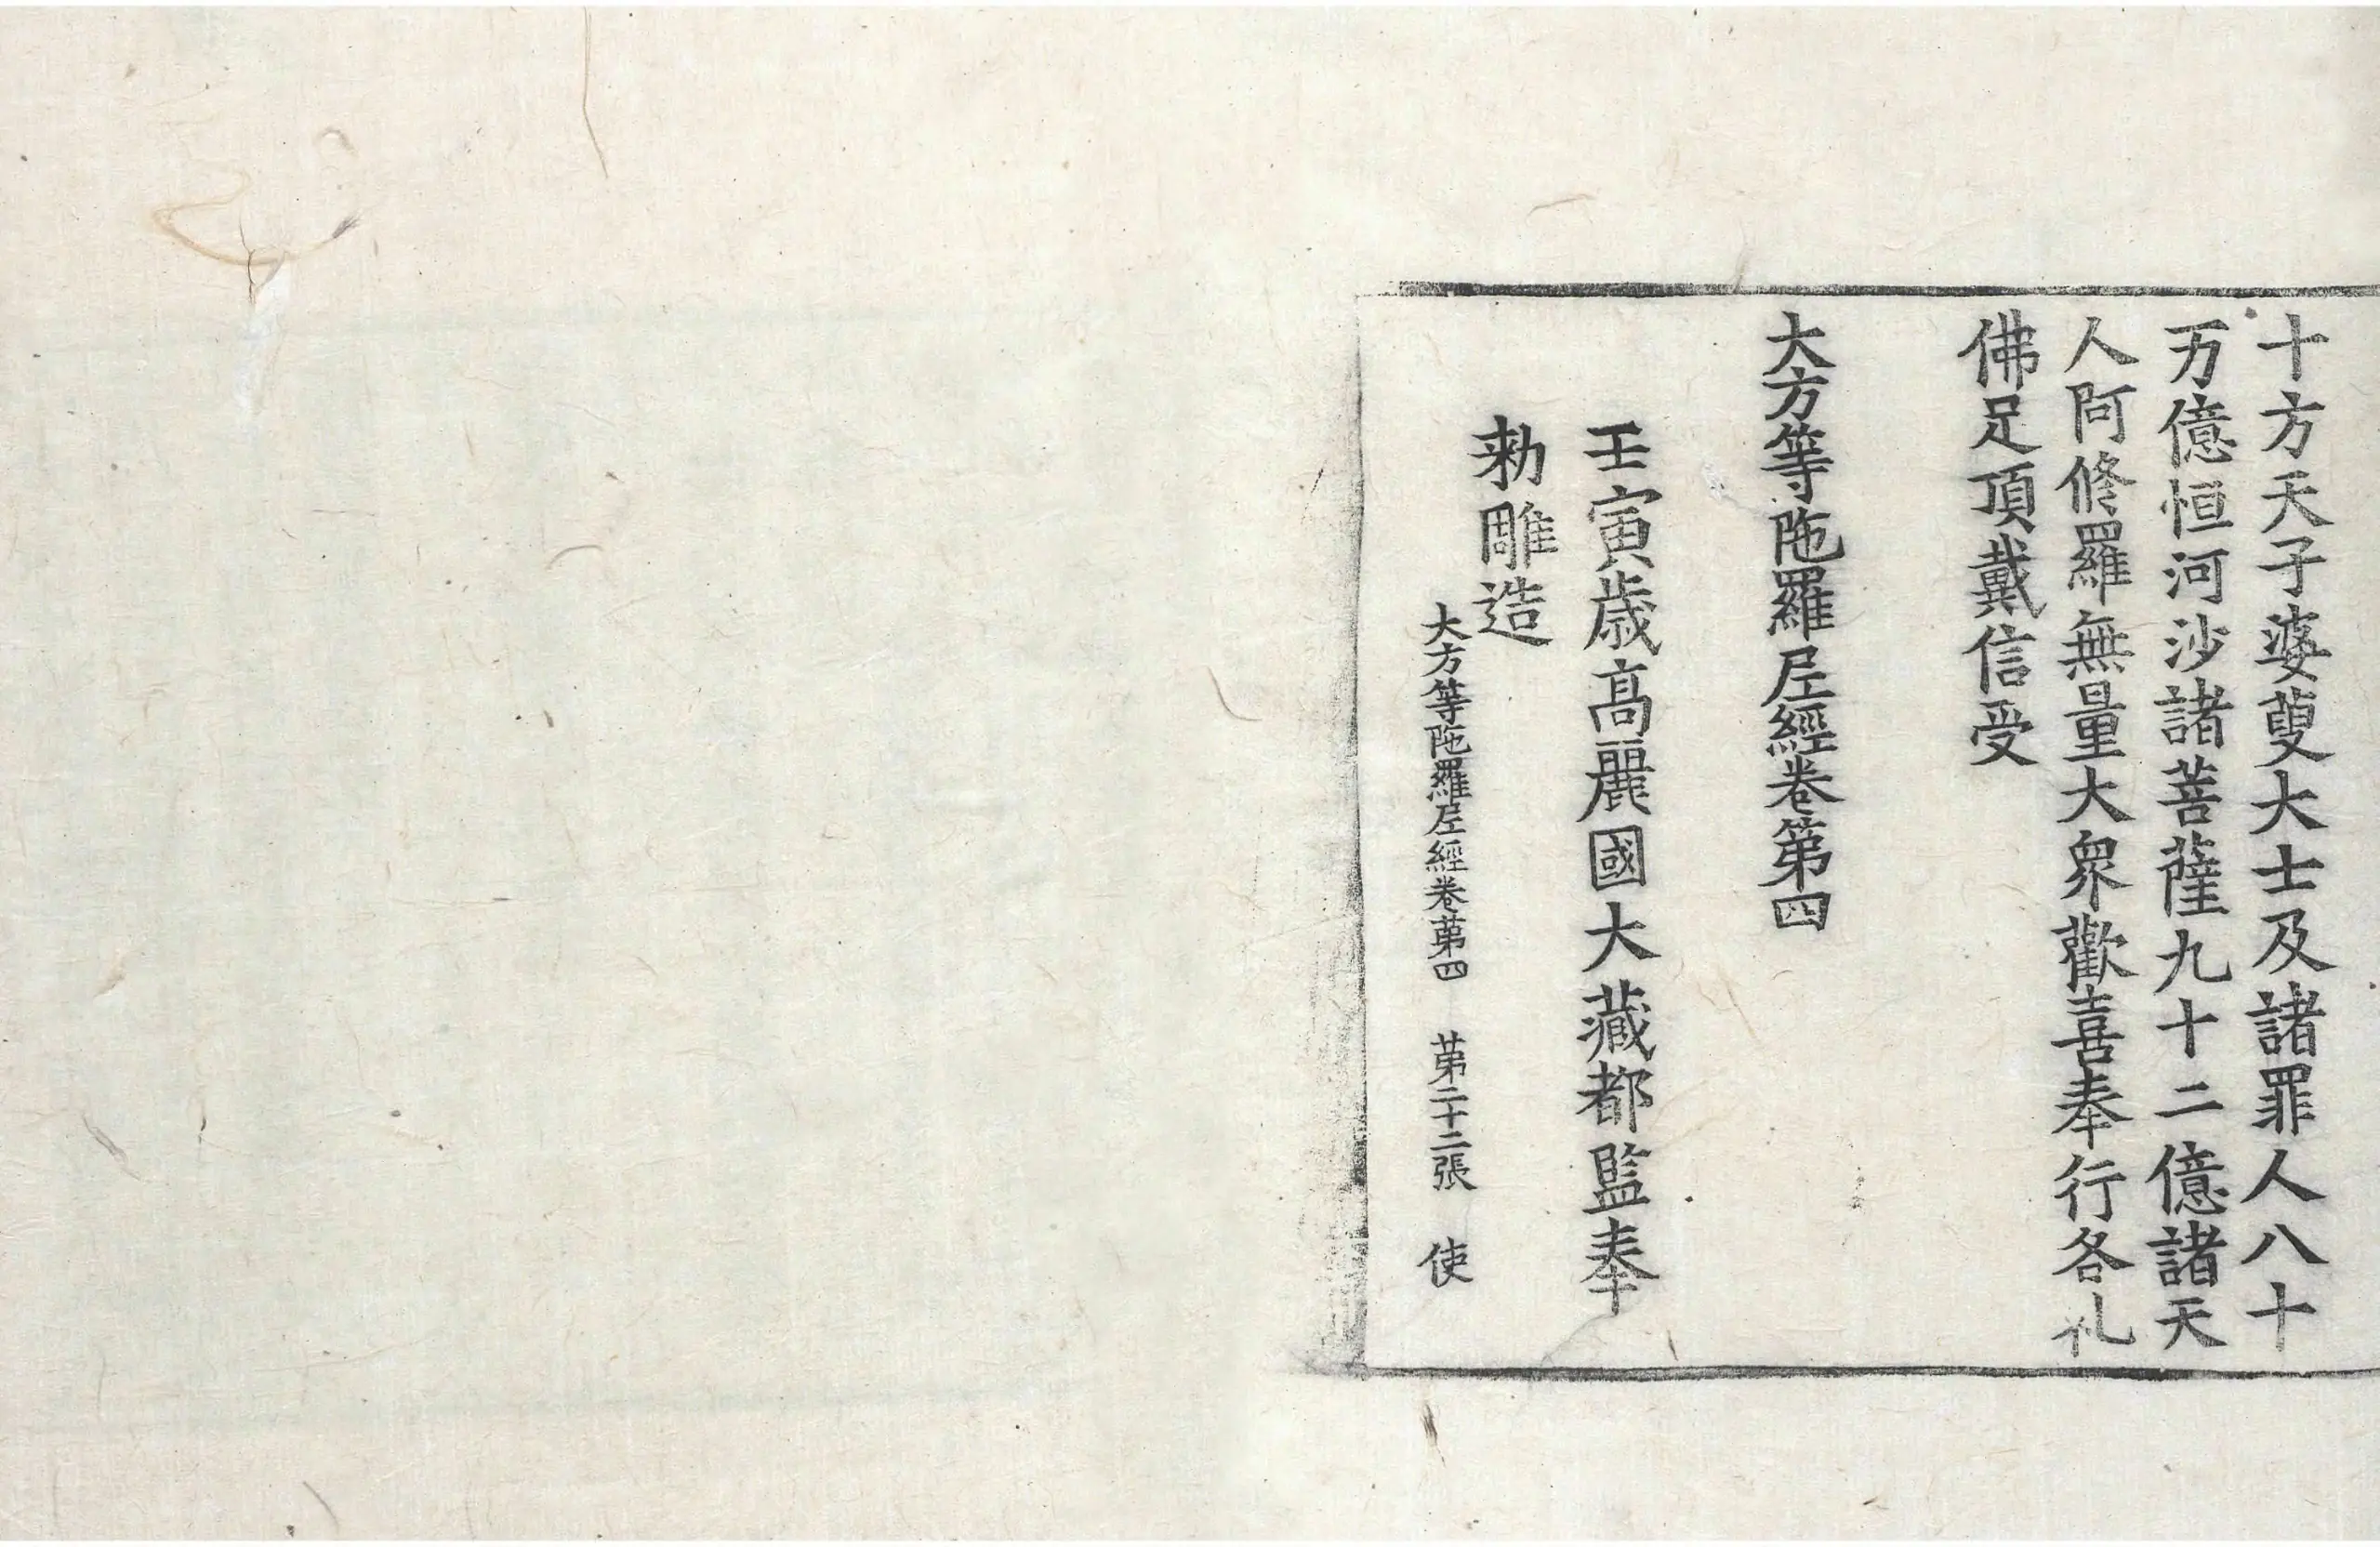 十方天子婆藪大士及諸罪人八十
万億恒河沙諸菩薩九十二億諸天
人阿修羅無量大衆歡喜奉行各礼
佛足頂戴信受
大方等陁羅尼經卷第四
壬寅歲高麗國大藏都監奉
勑雕造
大方等陁羅尼經卷苐四 苐二十二張 使